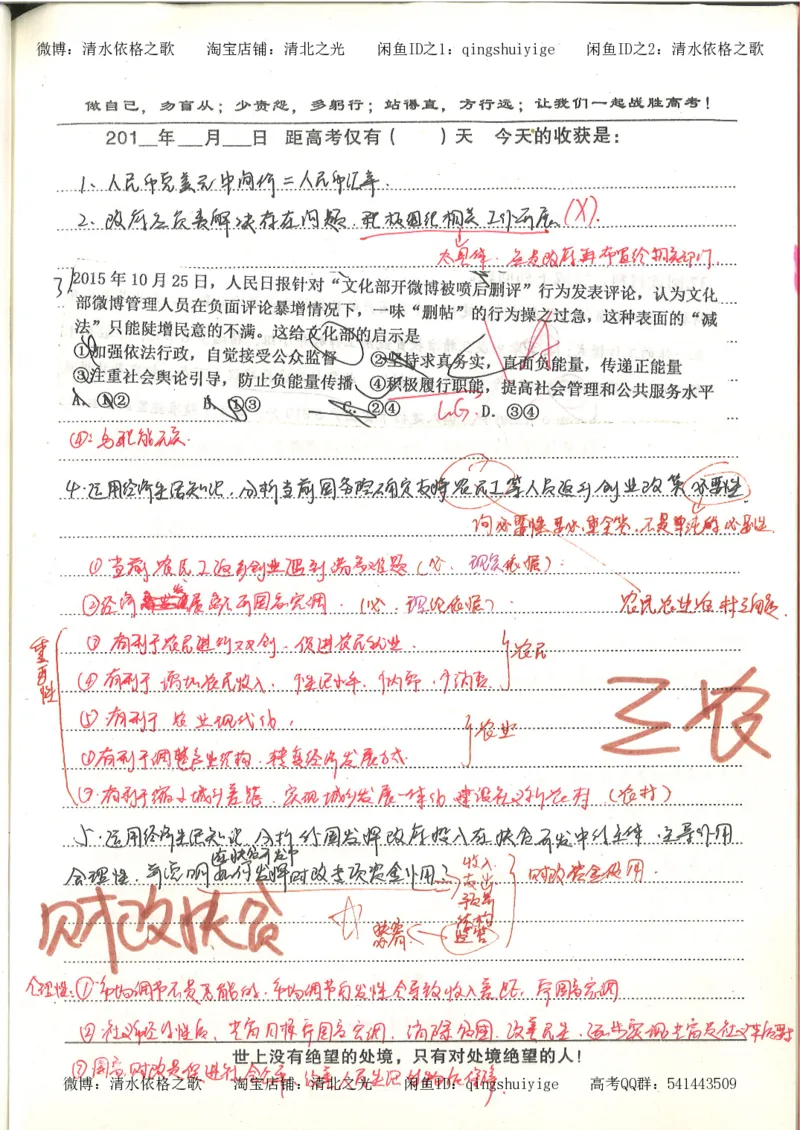 微博：清水依格之歌 淘宝店铺：清北之光 闲鱼ID之1：qingshuiyige 闲鱼ID之2：清水依格之歌
做自己，勿盲从；少责怨，多躬行；站得直，方行远；让我们一起战胜高考！
201__年___月___日 距高考仅有（ ）天 今天的收获是：
1、人民币兑美元中间价=人民币汇率.
2、政府应负责解决存在问题，积极组织相关工作开展 (X).
太具体，应是政府再布置给相关部门.
3、2015年10月25日，人民日报针对“文化部开微博被喷后删评”行为发表评论，认为文化
部微博管理人员在负面评论暴增情况下，一味“删帖”的行为操之过急，这种表面的“减
法”只能陡增民意的不满。这给文化部的启示是
①加强依法行政，自觉接受公众监督 ②坚持求真务实，直面负能量，传递正能量
③注重社会舆论引导，防止负能量传播 ④积极履行职能，提高社会管理和公共服务水平
A. ①② B. ①③ C. ②④ D. ③④
④：与职能无关.
4.运用经济生活知识，分析当前国务院确定支持农民工等人员返乡创业政策必要性.
问必要性要必、重全答，不是单纯的必要性.
①当前农民工返乡创业遇到诸多难题（必、现实依据）.
②经济发展离不开国家宏调.（必、理论依据）. 农民农业农村三问题.
重要性
③有利于农民进行双创，促进农民就业.
④有利于增加农民收入，个生活水平，个内需，个消费. 农民
⑤有利于农业现代化， 三农
⑥有利于调整产业结构，转变经济发展方式. 农业
⑦有利于缩小城乡差距，实现城乡发展一体化，建设社会主义新农村（农村）
5.运用经济生活知识，分析我国发挥政府投入在扶贫开发中的主体、主导作用
合理性，并说明在扶贫开发中如何发挥财政专项资金作用？
收入
支出
预算
监管
财政资金使用.
财政扶贫
合理性：①市场调节不是万能的，市场调节自发性会导致收入差距，需国家宏调
②社会主义性质、共富目标、需国家宏调，消除贫困，改善民生，逐步实现共富是社会主义本质要求
世上没有绝望的处境，只有对处境绝望的人！
③国家财政是促进社会公平、改善人民生活的物质保障.
微博：清水依格之歌 淘宝店铺：清北之光 闲鱼ID：qingshuiyige 高考QQ群：541443509